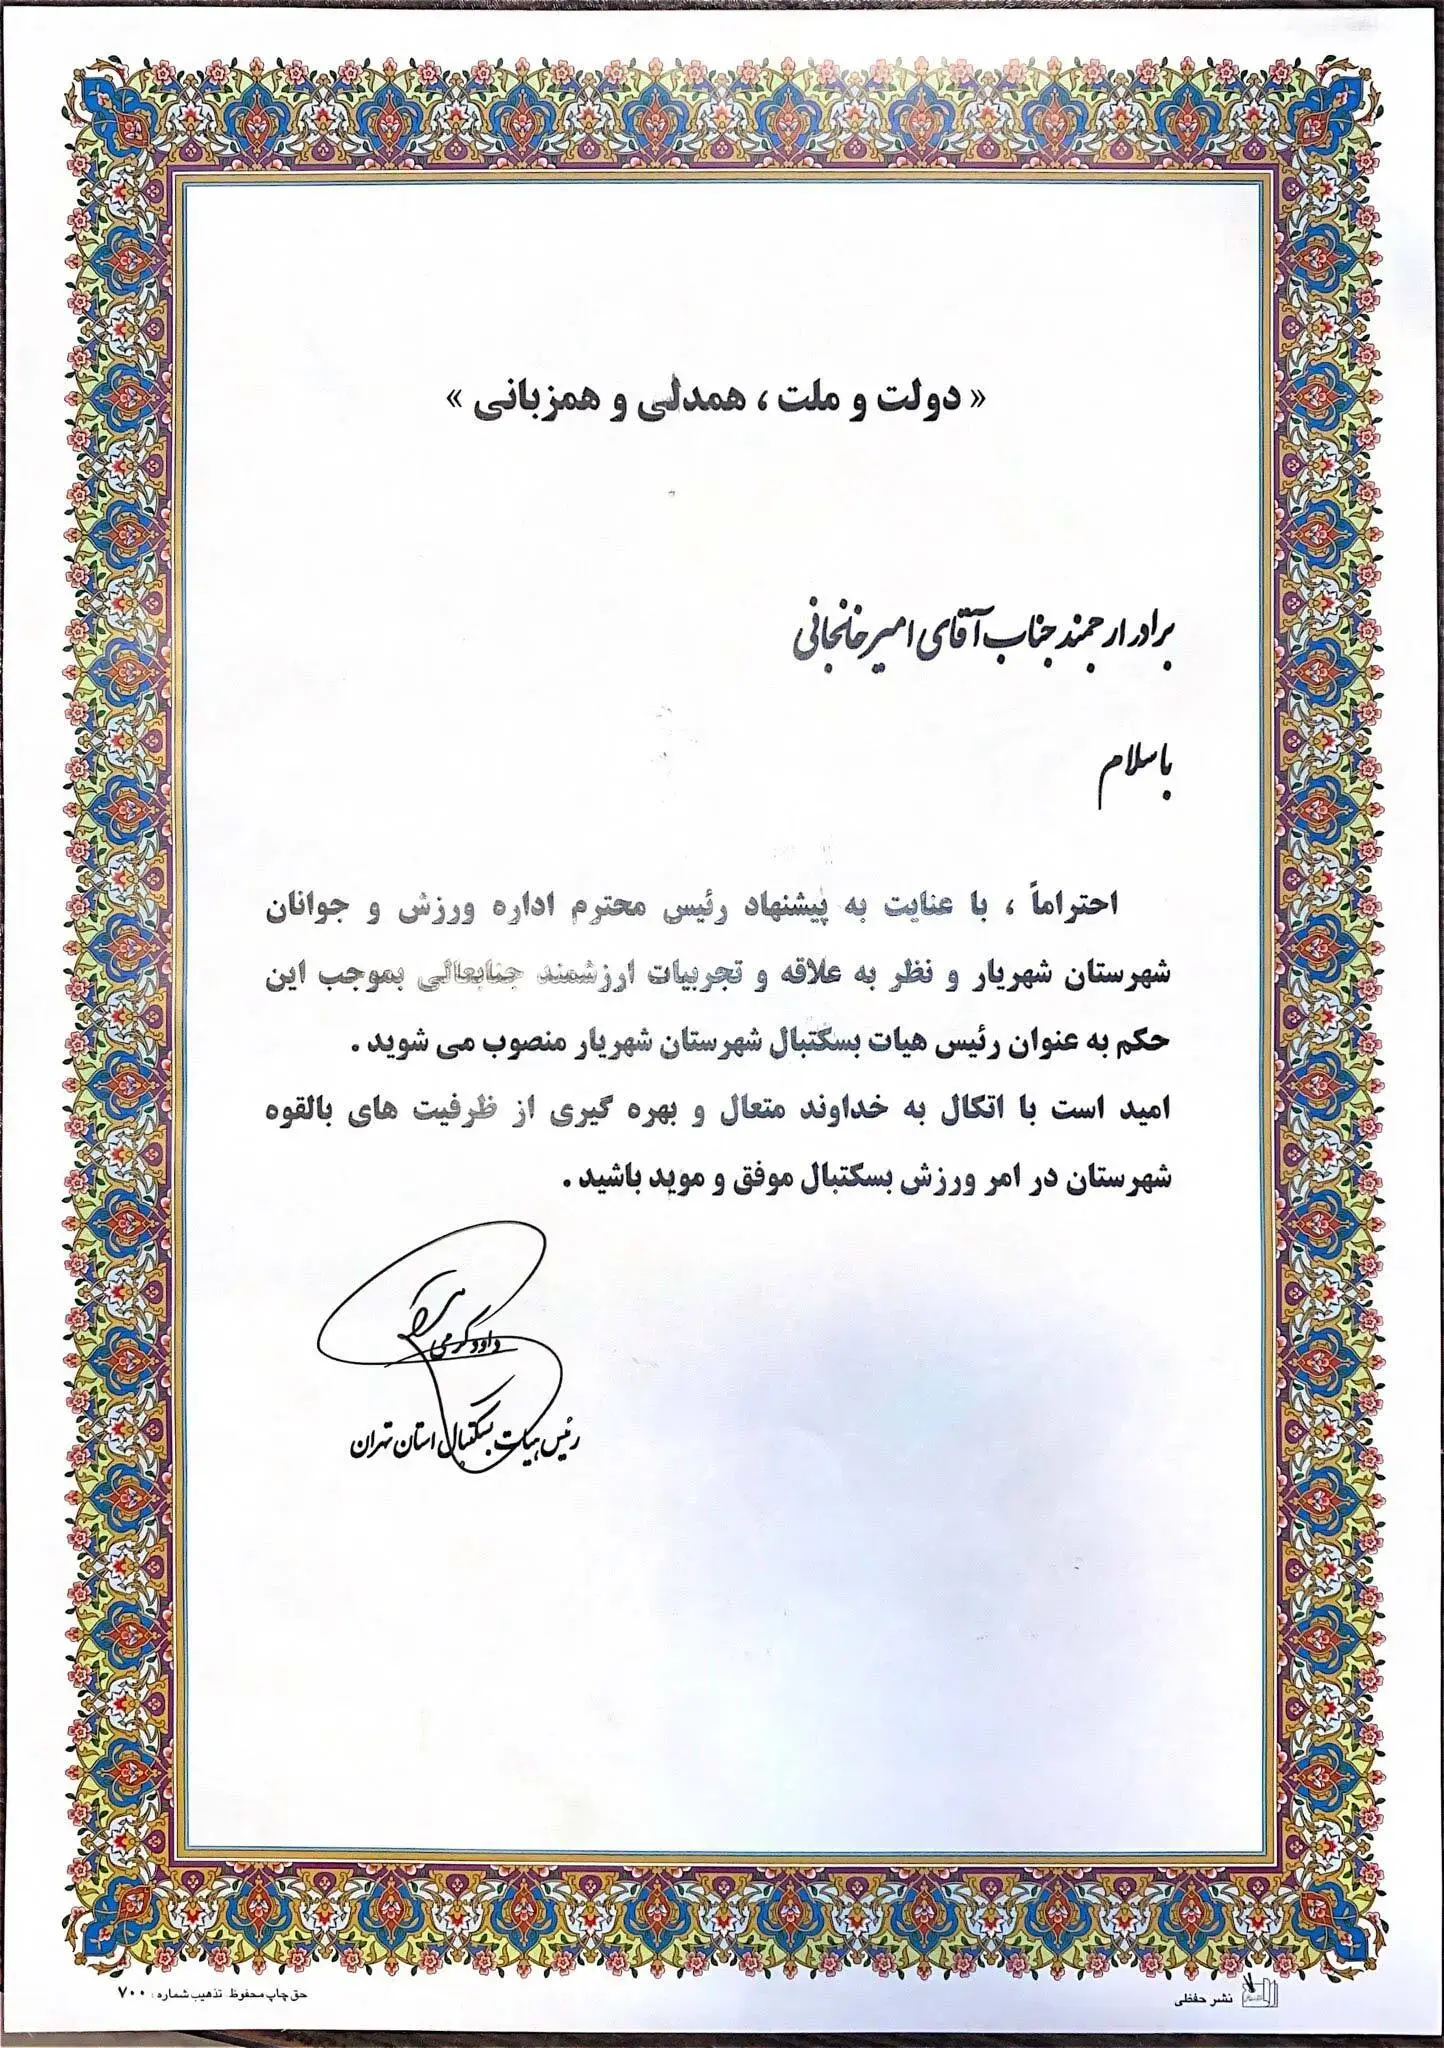 « دولت و ملت ، همدلی و همزبانی »
برادر ارجمند جناب آقای امیر خانجانی
با سلام
احتراماً ، با عنایت به پیشنهاد رئیس محترم اداره ورزش و جوانان
شهرستان شهریار و نظر به علاقه و تجربیات ارزشمند جنابعالی بموجب این
حکم به عنوان رئیس هیات بسکتبال شهرستان شهریار منصوب می شوید .
امید است با اتکال به خداوند متعال و بهره گیری از ظرفیت های بالقوه
شهرستان در امر ورزش بسکتبال موفق و موید باشید .
داود کرمی
رئیس هیات بسکتبال استان تهران
نشر حفظی
حق چاپ محفوظ تذهیب شماره : ۷۰۰